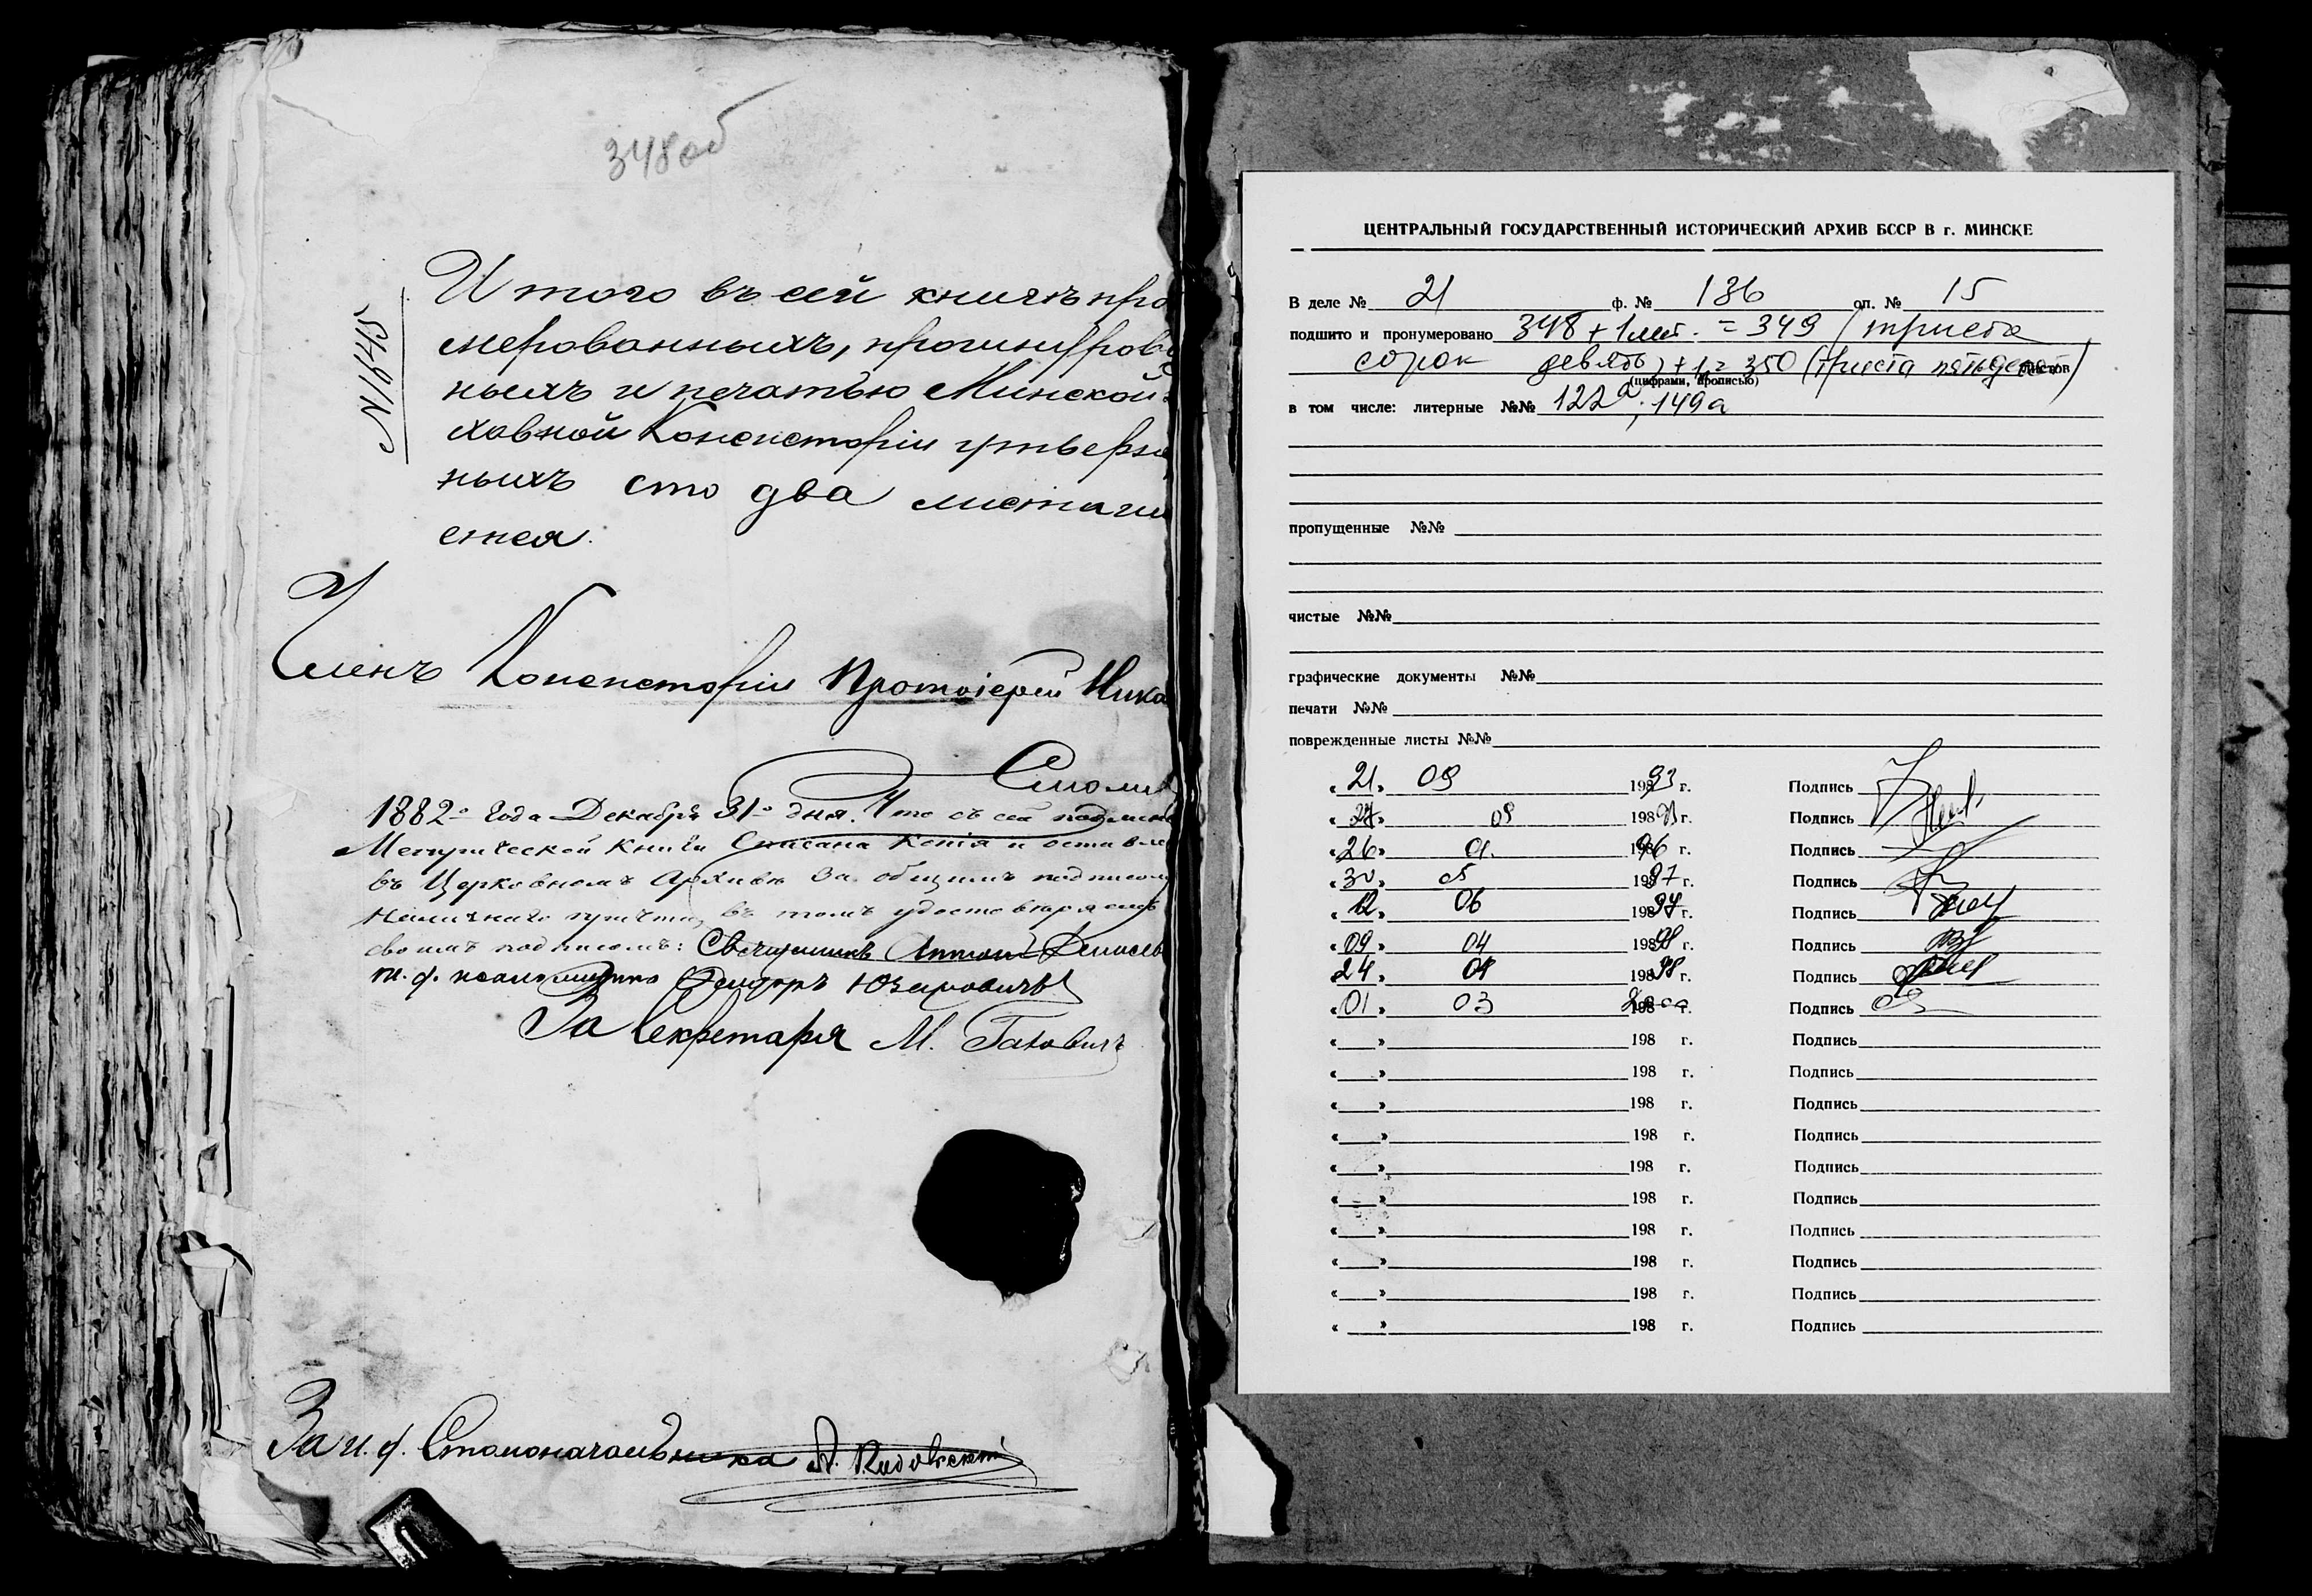 348 об
№ 1645
Итого въ сей книгѣ про
мерованныхъ, прошнурова
ныхъ и печатью Минской
ховной Консисторіи утверж
ныхъ сто два листа чи
слися.
Членъ Консисторіи Протоіерей Ника
Смоли
1882 года Декабря 31 дня. Что съ сей подлин
Метрической Книги Списана Копія и оставле
въ Церковномъ Архивѣ За общимъ подписом
причта, въ томъ удостовѣряемъ
своимъ подписомъ: Священникъ Антоній
и. д. псаломщика Ѳеодоръ Юзеповичъ
За Секретаря М.
За и. д. Столоначальника А.
ЦЕНТРАЛЬНЫЙ ГОСУДАРСТВЕННЫЙ ИСТОРИЧЕСКИЙ АРХИВ БССР В г. МИНСКЕ
В деле № 21 ф. № 136 оп. № 15
подшито и пронумеровано 348 + 1 лит. = 349 (триста
сорок девять) + 1 = 350 (триста пятьдесят) листов
(цифрами, прописью)
в том числе: литерные №№ 122а; 149а
пропущенные №№
чистые №№
графические документы №№
печати №№
поврежденные листы №№
«21» 09 1993 г. Подпись
«27» 09 198 г. Подпись
«26» 01. 96 г. Подпись
«30» 05 1997 г. Подпись
«12» 06 1997 г. Подпись
«09» 04 1998 г. Подпись
«24» 04 1998 г. Подпись
«01» 03 2000 г. Подпись
« » 198 г. Подпись
« » 198 г. Подпись
« » 198 г. Подпись
« » 198 г. Подпись
« » 198 г. Подпись
« » 198 г. Подпись
« » 198 г. Подпись
« » 198 г. Подпись
« » 198 г. Подпись
« » 198 г. Подпись